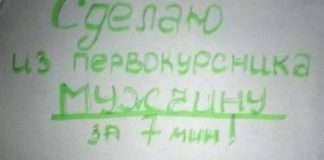 Сделаю
из первокурсника
мужчину
за 7 мин!